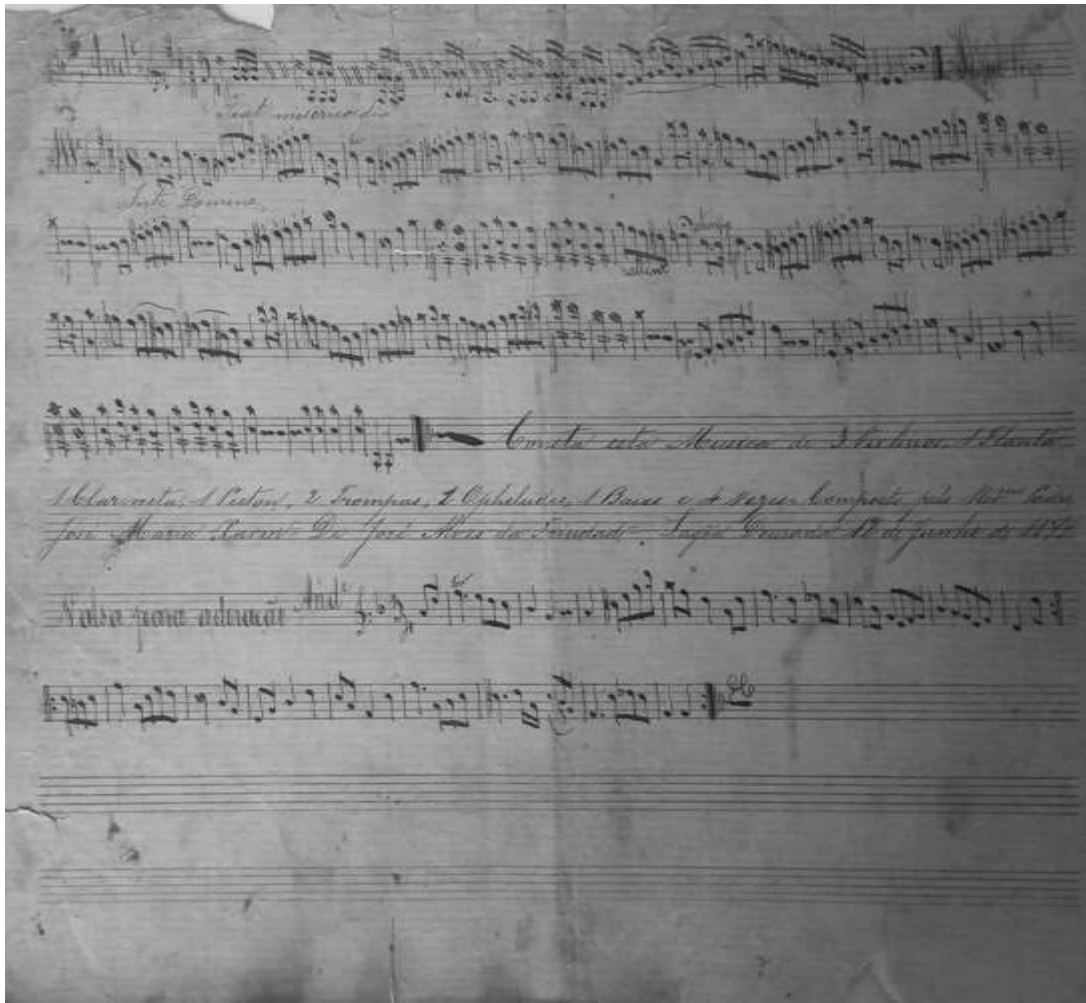 And.e
Fiat misericordia
In te Domine
Consta esta Musica de 3 Violinos, 1 Flauta
1 Clarineta, 1 Piston, 2 Trompas, 1 Ophcleide, 1 Baixo e 4 Vozes Composta pelo Padre
José Maria Xavier De José Alves da Trindade. Lagôa Dourada 12 de Junho de
Valsa para adoração And.e